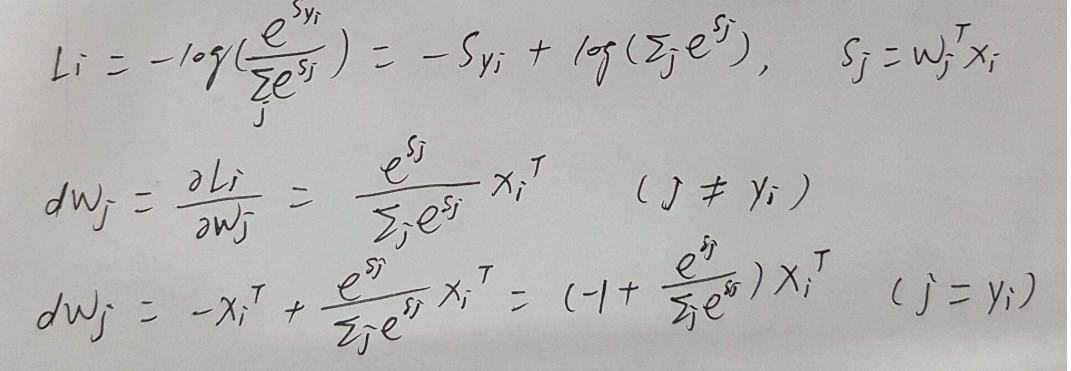 Li = -log(e^{S_{yi}} / Σ_j e^{S_j}) = -S_{yi} + log(Σ_j e^{S_j}), S_j = W_j^T x_i
dW_j = ∂Li/∂W_j = e^{S_j} / Σ_j e^{S_j} x_i^T (j ≠ y_i)
dW_j = -x_i^T + e^{S_j} / Σ_j e^{S_j} x_i^T = (-1 + e^{S_j} / Σ_j e^{S_j}) x_i^T (j = y_i)